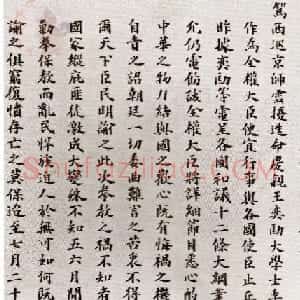 駕西巡京師雲擾迭命慶親王奕劻大學士李
作為全權大臣便宜行事與各國使臣止兵
昨據奕劻等電呈各國和議十二條大綱業
允仍電飭該全權大臣將詳細節目悉心
中華之物力結與國之歡心既有悔禍之
自責之詔朝廷一切委曲難言之苦衷不得
爾天下臣民明諭之此次拳教之禍不知者
國家縱庇匪徒激成大變殊不知五六月間
勦拳保教而亂民悍族迫人於無可如何既
諭之俱窮復憤存亡之莫保迨至七月二十